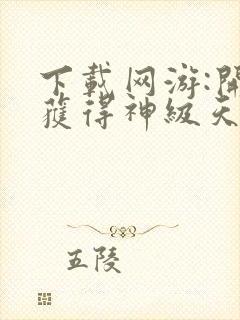 下載网游:開
獲得神級天
五陵